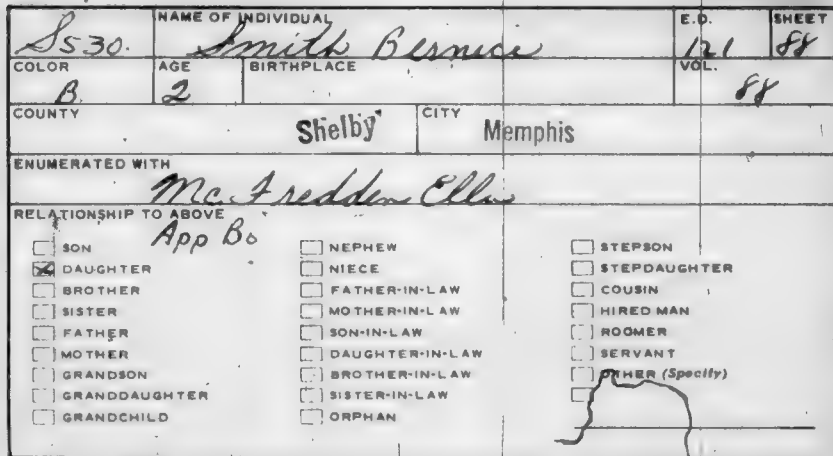 NAME OF INDIVIDUAL E.D. SHEET
S530. Smith Bernice 121 88
COLOR AGE BIRTHPLACE VOL.
B 2 88
COUNTY Shelby CITY Memphis
ENUMERATED WITH
Mc Fredden Ella
RELATIONSHIP TO ABOVE
App Bo
SON
DAUGHTER
BROTHER
SISTER
FATHER
MOTHER
GRANDSON
GRANDDAUGHTER
GRANDCHILD
NEPHEW
NIECE
FATHER-IN-LAW
MOTHER-IN-LAW
SON-IN-LAW
DAUGHTER-IN-LAW
BROTHER-IN-LAW
SISTER-IN-LAW
ORPHAN
STEPSON
STEPDAUGHTER
COUSIN
HIRED MAN
ROOMER
SERVANT
OTHER (Specify)